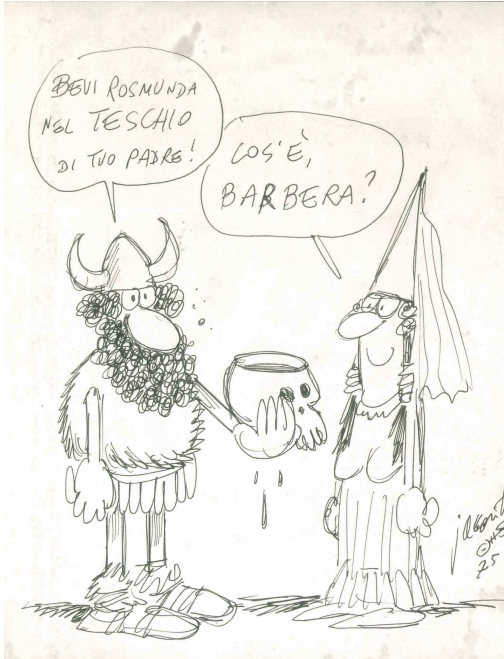 BEVI ROSMUNDA
NEL TESCHIO
DI TUO PADRE!
COS'È,
BARBERA?
25